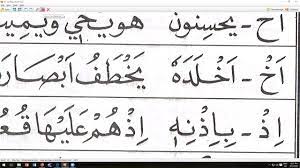 اَحْ - يُحْسِنُوْنَ هُوَيُحْيٖ وَيُمِيْ
اَخْ - اَخْلَدَهٗ يَخْطَفُ اَبْصَارَ
اِذْ - بِاِذْنِهٖ اِذْهُمْ عَلَيْهَا قُعُ